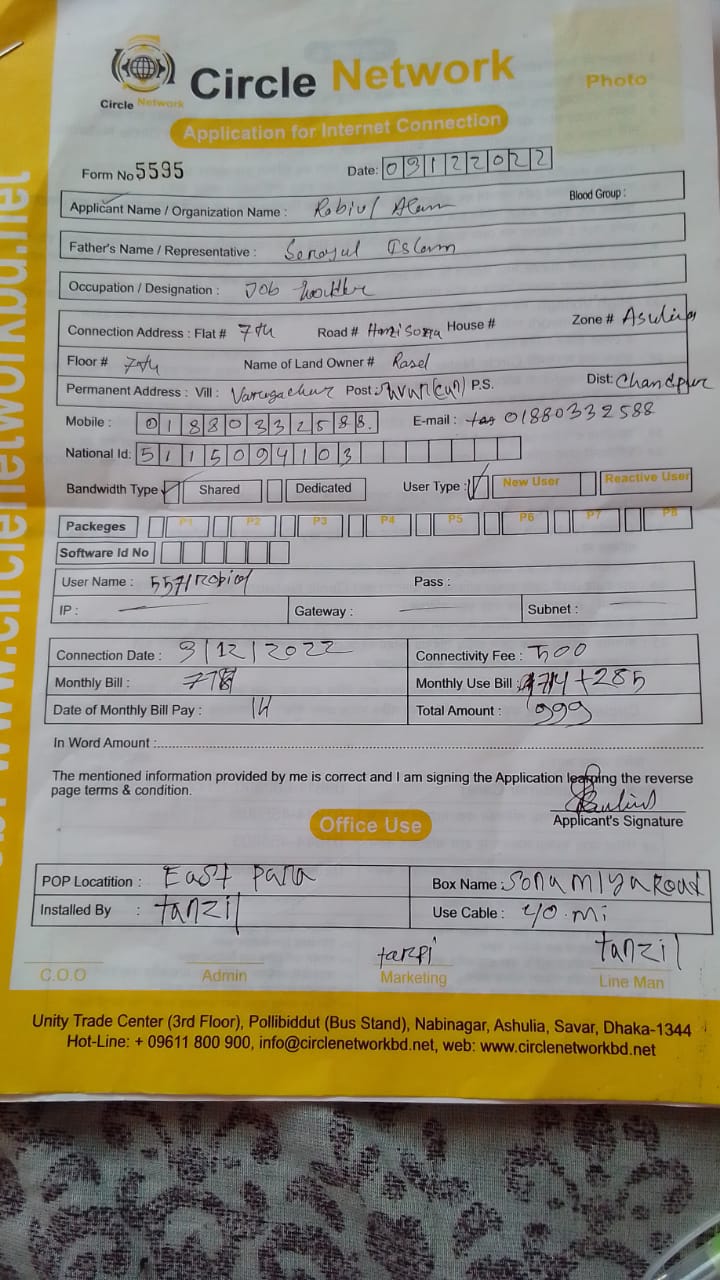 Circle Network
Circle Network
Photo
Application for Internet Connection
Form No 5595
Date: 03122022
Blood Group :
Applicant Name / Organization Name : Robiul Alam
Father's Name / Representative : Islam
Occupation / Designation : Job
Connection Address : Flat # 7th Road # House # Zone #
Floor # 7th Name of Land Owner # Rasel
Permanent Address : Vill : Post : P.S. Dist: Chandpur
Mobile : 01880332588. E-mail : 01880332588
National Id: 5115094103
Bandwidth Type Shared Dedicated User Type : New User Reactive User
Packeges P1 P2 P3 P4 P5 P6 P7 P8
Software Id No
User Name : Pass :
IP : Gateway : Subnet :
Connection Date : 3/12/2022 Connectivity Fee : 500
Monthly Bill : Monthly Use Bill : +285
Date of Monthly Bill Pay : Total Amount : 999
In Word Amount :
The mentioned information provided by me is correct and I am signing the Application the reverse
page terms & condition.
Applicant's Signature
Office Use
POP Locatition : East Para Box Name : Sonu Miya Road
Installed By : tanzil Use Cable : 40.mi
tanzil
C.O.O Admin Marketing Line Man
Unity Trade Center (3rd Floor), Pollibiddut (Bus Stand), Nabinagar, Ashulia, Savar, Dhaka-1344
Hot-Line: + 09611 800 900, info@circlenetworkbd.net, web: www.circlenetworkbd.net
www.circlenetworkbd.net